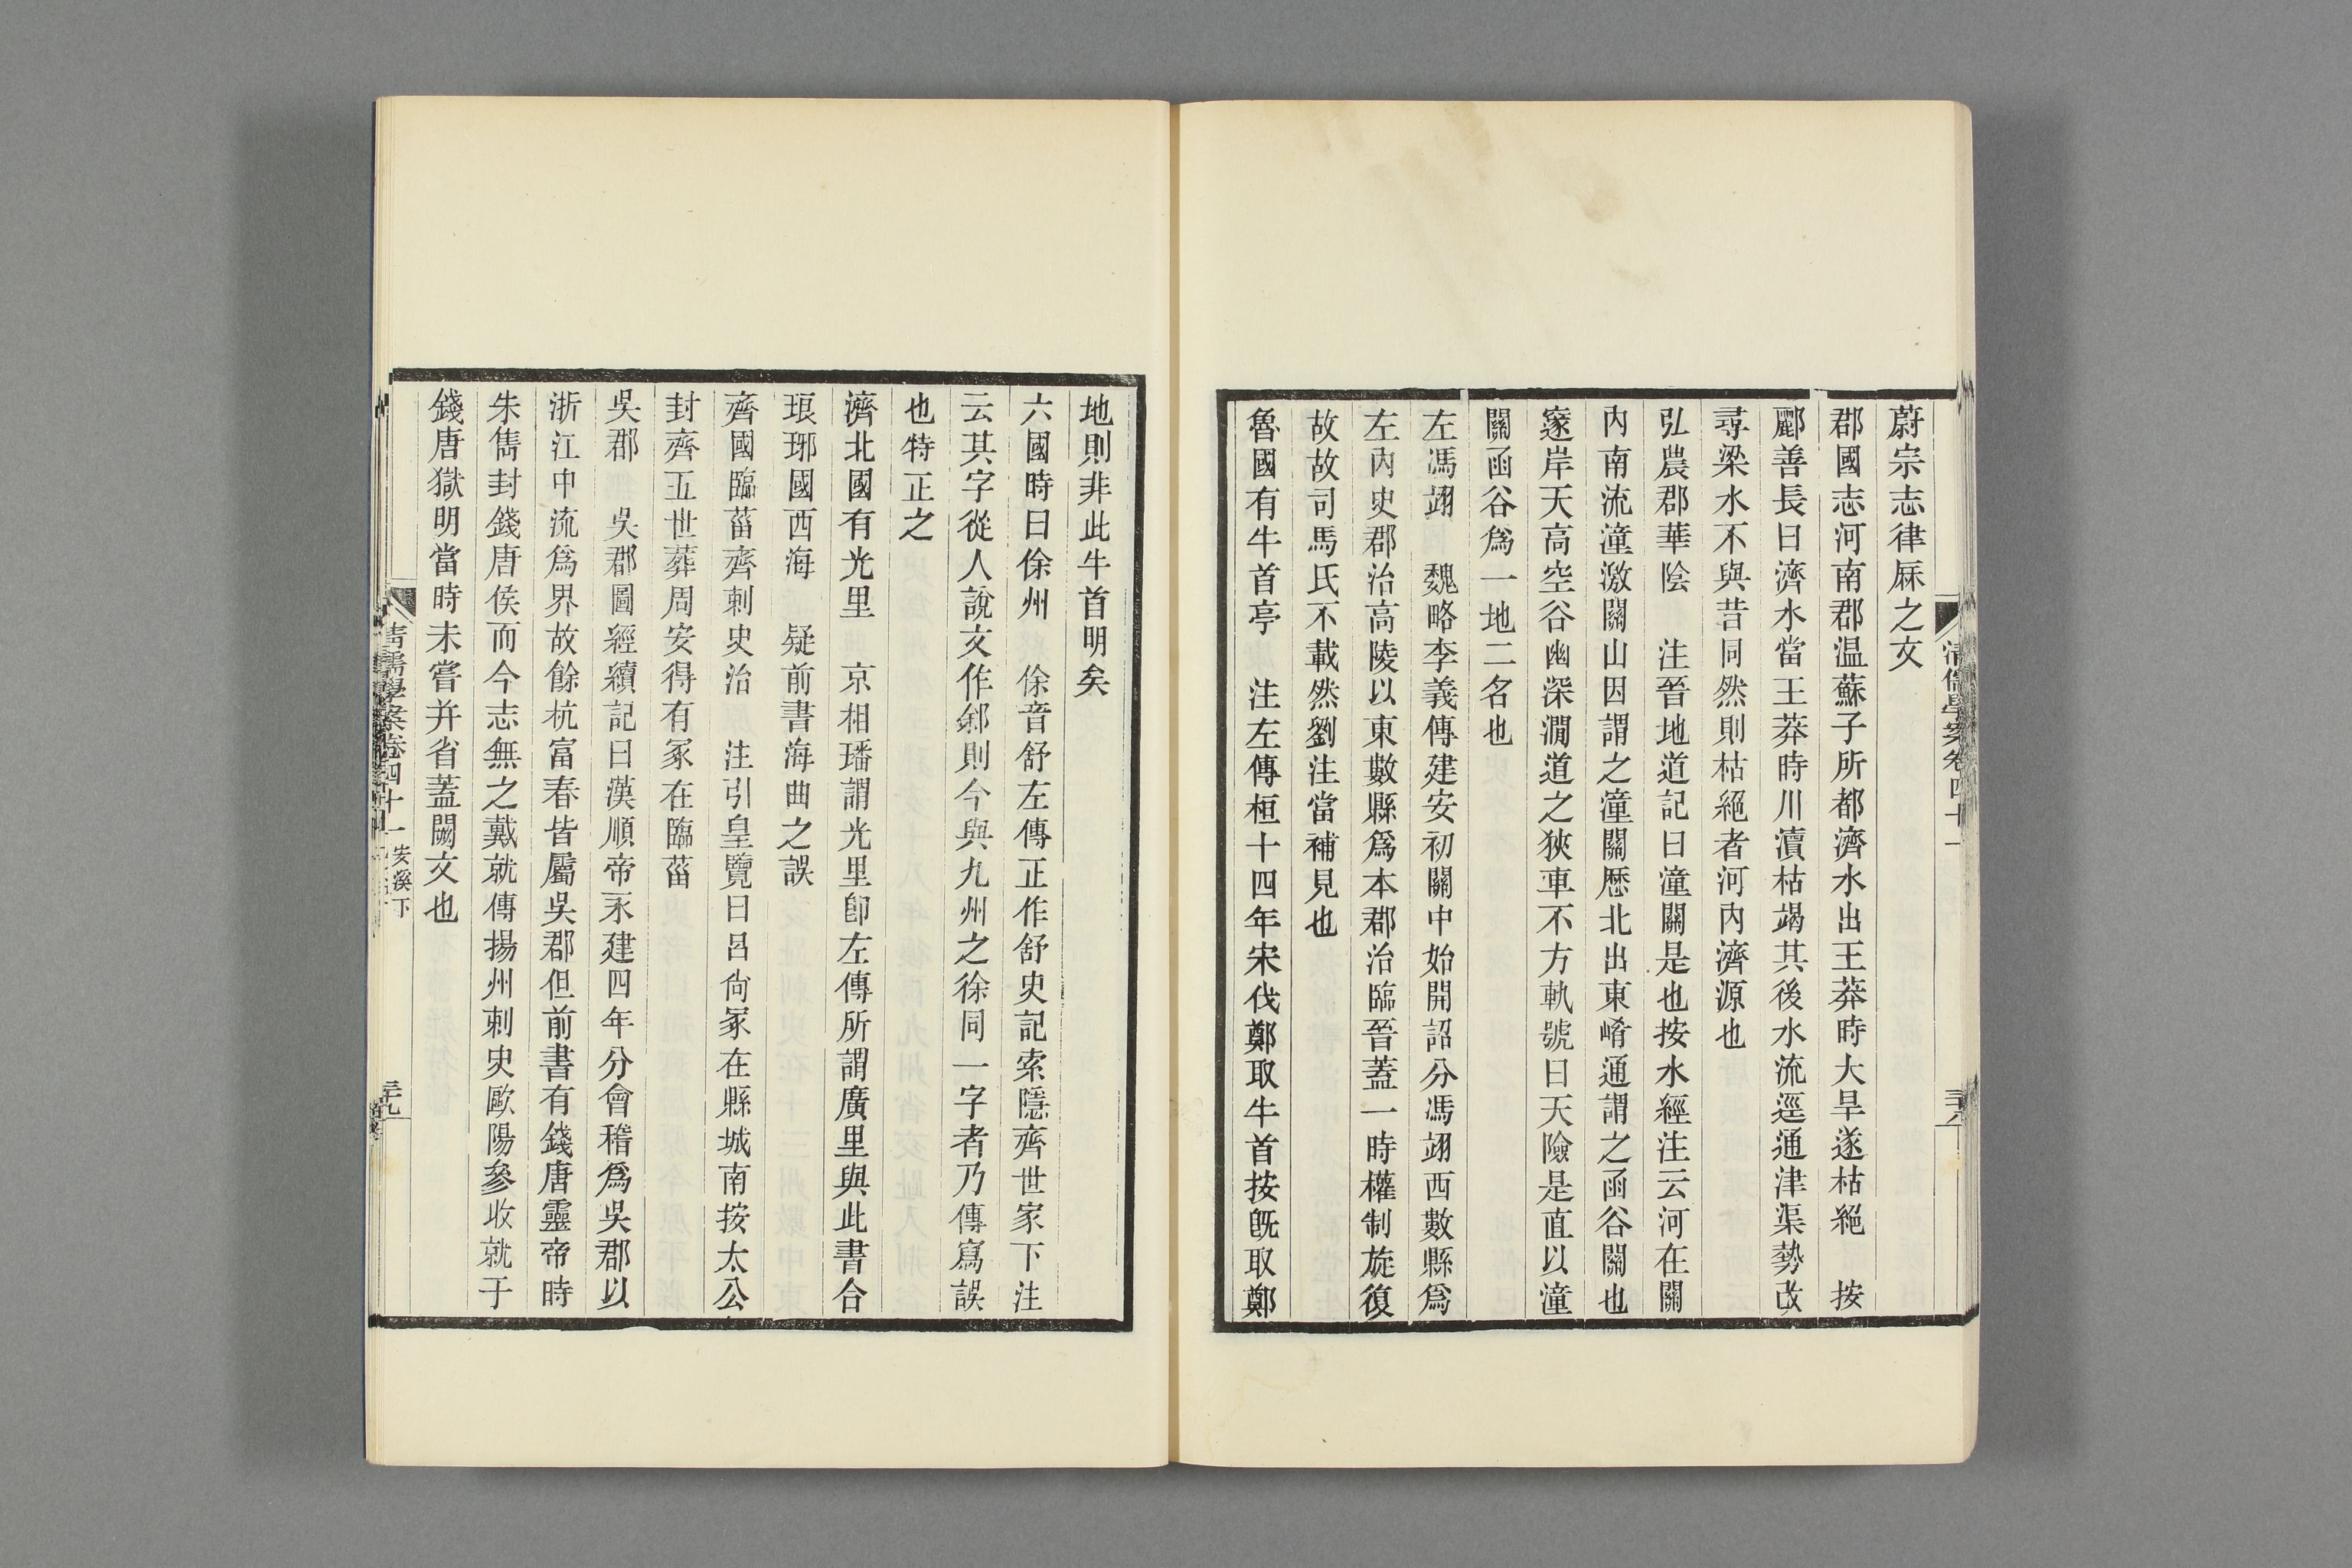 蔚宗志律厤之文
郡國志河南郡温蘇子所都濟水出王莽時大旱遂枯絕　按
酈善長曰濟水當王莽時川瀆枯竭其後水流逕通津渠勢改
尋梁水不與昔同然則枯絕者河內濟源也
弘農郡華陰　注晉地道記曰潼關是也按水經注云河在關
內南流潼激關山因謂之潼關歷北出東崤通謂之函谷關也
邃岸天高空谷幽深澗道之狹車不方軌號曰天險是直以潼
關函谷爲一地二名也
左馮翊　魏略李義傳建安初關中始開詔分馮翊西數縣爲
左內史郡治高陵以東數縣爲本郡治臨晉蓋一時權制旋復
故故司馬氏不載然劉注當補見也
魯國有牛首亭　注左傳桓十四年宋伐鄭取牛首按旣取鄭
清儒學案卷四十一
三十八
地則非此牛首明矣
六國時曰俆州　俆音舒左傳正作舒史記索隱齊世家下注
云其字從人說文作䣄則今與九州之徐同一字者乃傳寫誤
也特正之
濟北國有光里　京相璠謂光里卽左傳所謂廣里與此書合
琅琊國西海　疑前書海曲之誤
齊國臨菑齊刺史治　注引皇覽曰呂尙冢在縣城南按太公
封齊五世葬周安得有冢在臨菑
吳郡　吳郡圖經續記曰漢順帝永建四年分會稽爲吳郡以
浙江中流爲界故餘杭富春皆屬吳郡但前書有錢唐靈帝時
朱儁封錢唐侯而今志無之戴就傳揚州刺史歐陽參收就于
錢唐獄明當時未嘗并省蓋闕文也
清儒學案卷四十一 安溪下
三十九